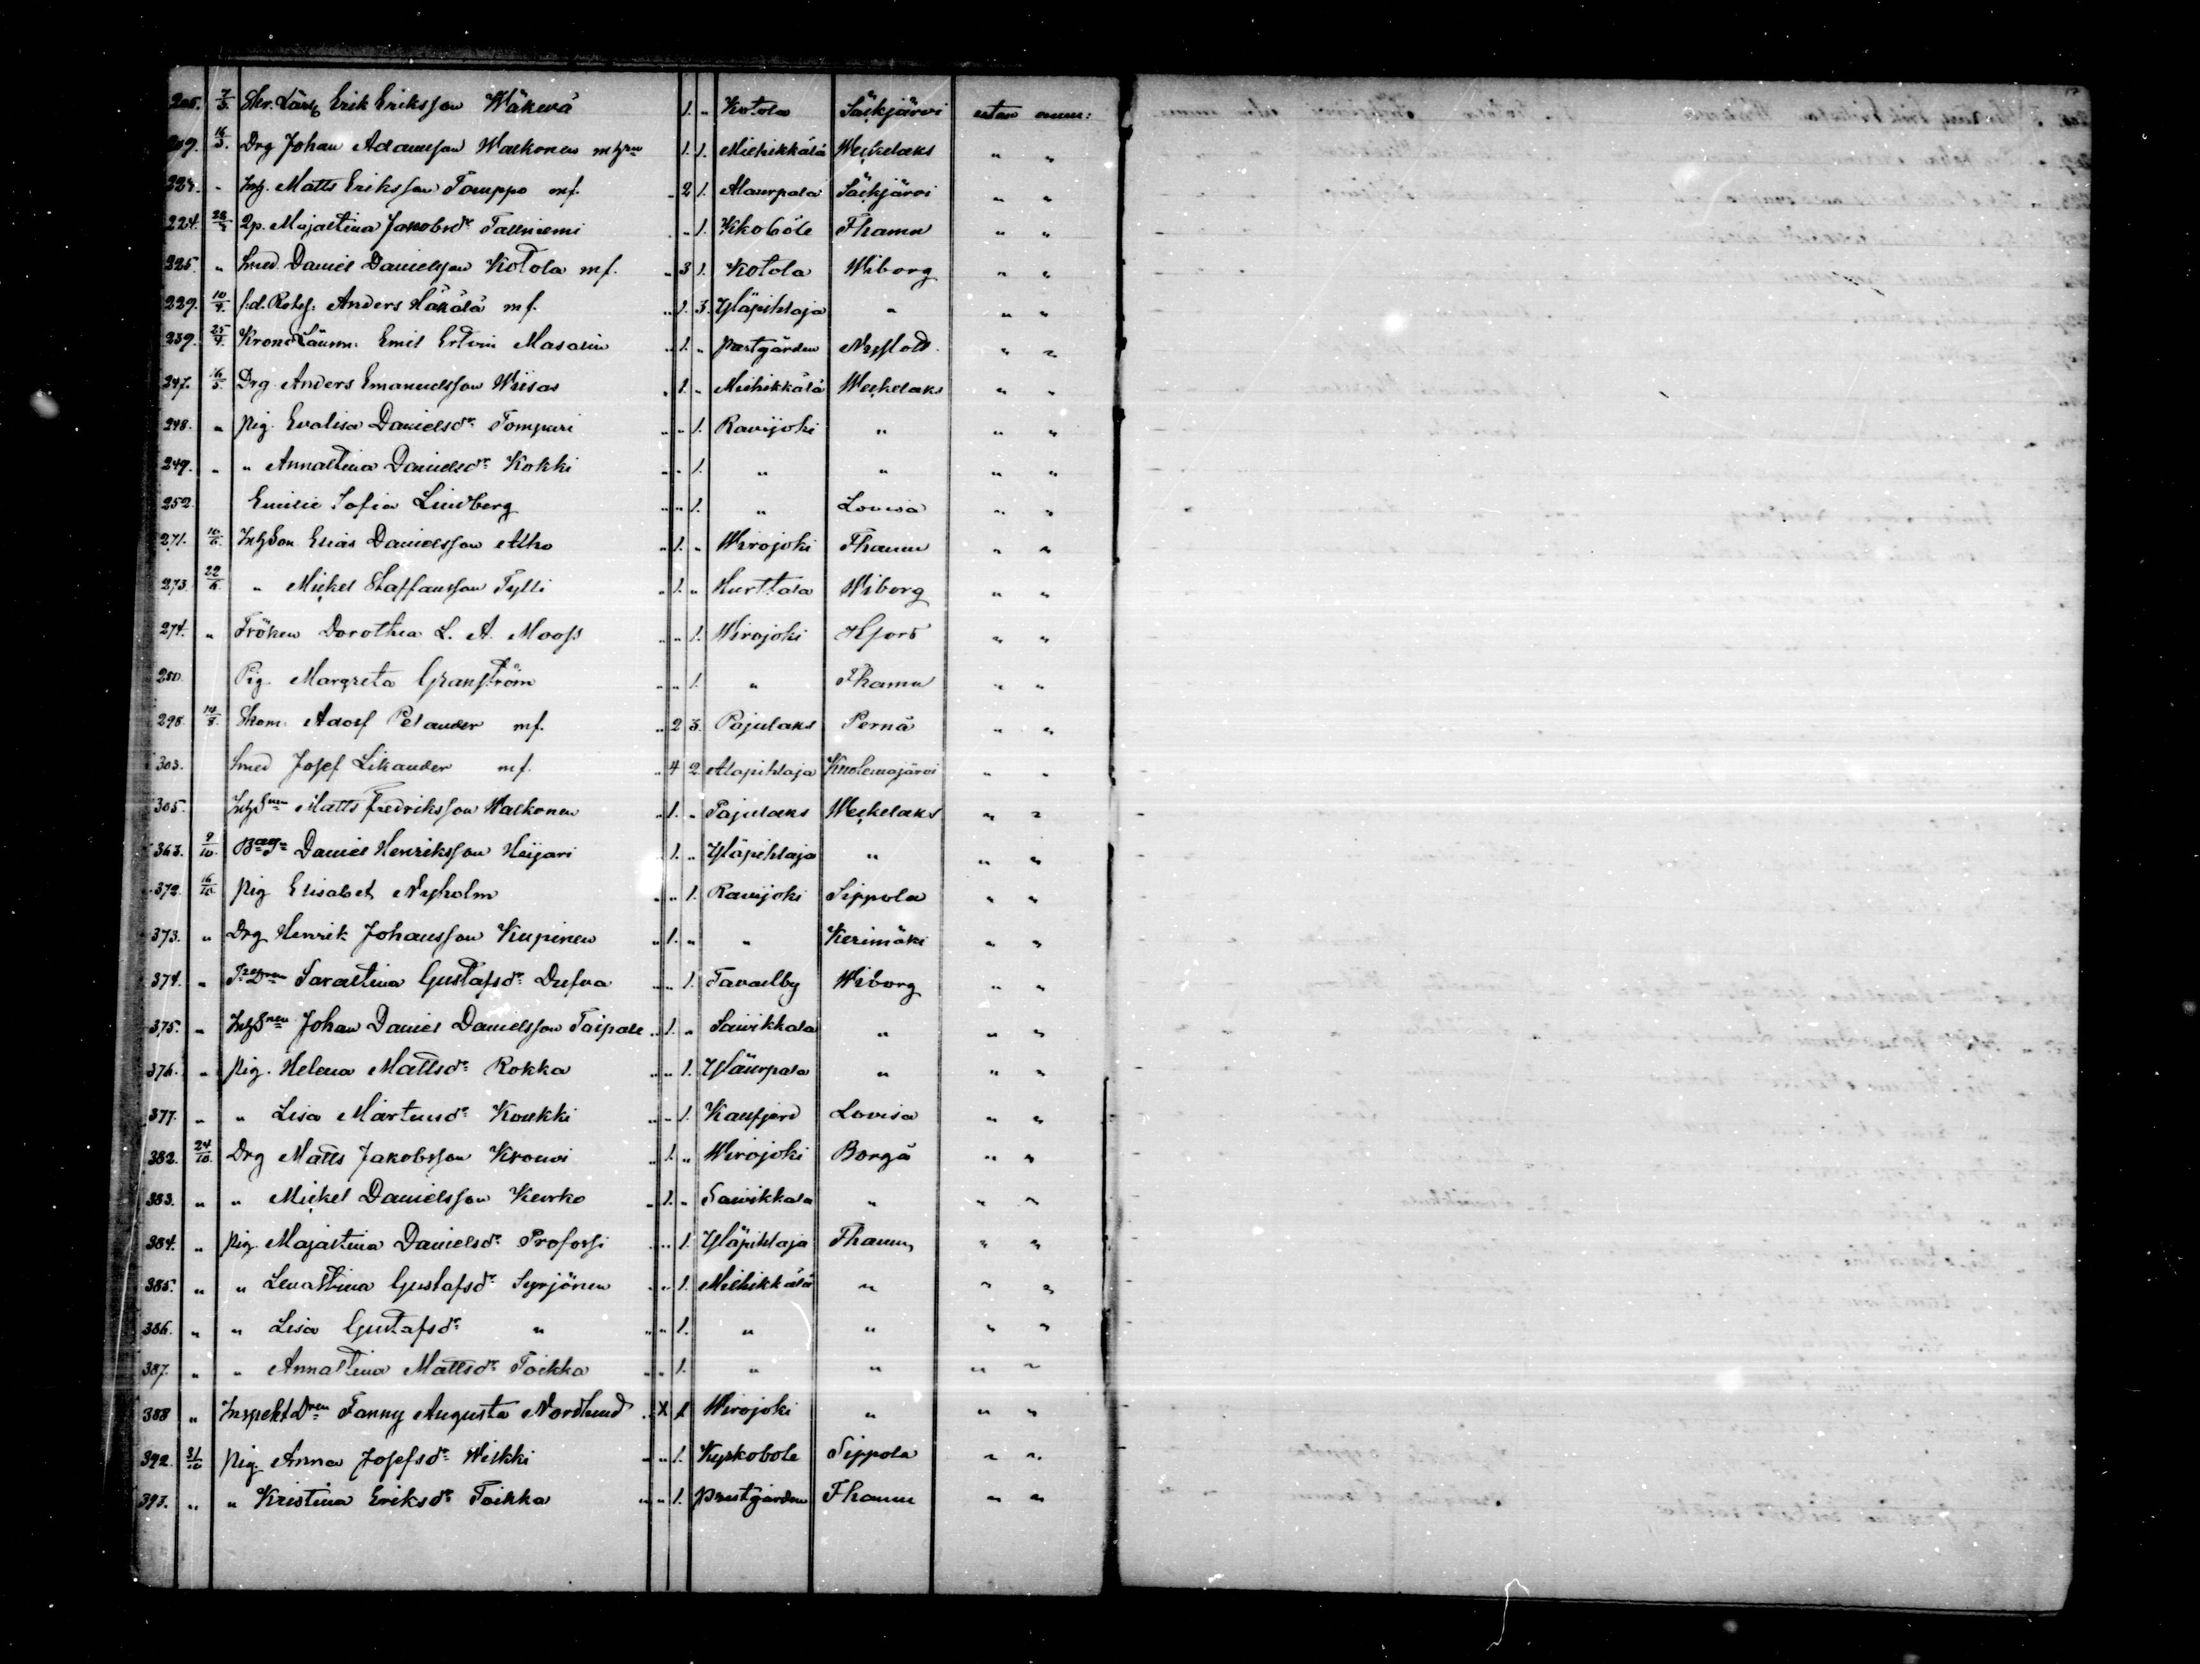 205. 7/3. Skr. Lärl. Erik Eriksson Wäkevä 1. „ Kotola Säkjärvi utan anm:
209. 16/3. Drg Johan Adamsson Walkonen m hn 1. 1. Miehikkälä Weckelaks „ „
223. „ Inh. Matts Eriksson Tomppo mf. 2 1. Alaurpala Säkjärvi „ „
224. 28/3 Qp. Majastina Jakobsdr Tallniemi „ 1. Kkoböle Fhamn „ „
225. „ Smed Daniel Danielsson Kotola mf. „ 3 1. Kotola Wiborg „ „
229. 10/4. f.d. Anders Häkälä mf. „ 1. 3. Yläpihlaja „ „ „
239. 25/4. Krono Länsm: Emil Edvin Masalin „ 1. „ Prestgården Nyslott „ „
247. 16/5. Drg Anders Emanuelsson Wiisas „ 1. „ Miehikkälä Weckelaks „ „
248. „ Pig. Evalisa Danielsdr Tompuri „ „ 1. Ravijoki „ „ „
249. „ „ Annastina Danielsdr Kokki „ „ 1. „ „ „ „
252. Emilie Sofia Lindberg „ „ 1. „ Lovisa „ „
271. 10/6. Inh Son Elias Danielsson Alho „ 1. „ Wirojoki Fhamn „ „
273. 22/6. „ Mickel Staffansson Tylli „ 1. „ Hurttala Wiborg „ „
274. „ Fröken Dorothea L. A. Mooss „ „ 1. Wirojoki Hfors „ „
280. Pig. Margreta Granström „ „ 1. „ Fhamn „ „
298. 14/8. Skom: Adolf Pelander mf. „ 2 3. Pajulaks Pernå „ „
303. Smed Josef Likander mf. „ 4 2. Alapihlaja Kuolemajärvi „ „
305. Inh Snen Matts Fredriksson Walkonen „ 1. „ Pajulaks Weckelaks „ „
363. 9/10. Daniel Henriksson Heijari 1. „ Yläpihlaja „ „ „
372. 16/10. Pig Elisabet Nyholm „ „ 1. Ravijoki Sippola „ „
373. „ Drg Henrik Johansson Kupinen „ 1. „ „ Kerimäki „ „
374. „ Sarastina Gustafsdr Dufva „ „ 1. Tavastby Wiborg „ „
375. „ Inh Snen Johan Daniel Danielsson Taipale „ 1. „ Saivikkala „ „ „
376. „ Pig. Helena Mattsdr Rokka „ „ 1. Yläurpala „ „ „
377. „ „ Lisa Mårtensdr Koukki „ „ 1. Lovisa „ „
382. 24/10. Drg Matts Jakobsson Krouvi „ 1. „ Wirojoki Borgå „ „
383. „ „ Mickel Danielsson Keurko „ 1. „ Saivikkala „ „ „
384. „ Pig. Majastina Danielsdr Profossi „ „ 1. Yläpihlaja Fhamn „ „
385. „ „ Lenastina Gustafsdr Syrjönen „ „ 1. Miehikkälä „ „ „
386. „ „ Lisa Gustafsdr „ „ „ 1. „ „ „ „
387. „ „ Annastina Mattsdr Toikka „ „ 1. „ „ „ „
388 „ Inspekt Dren Fanny Augusta Nordlund „ X 1 Wirojoki „ „ „
392. 31/10 Pig. Anna Josefsdr Wilkki „ „ 1. Kyrkoböle Sippola „ „
393. „ „ Kristina Eriksdr Toikka „ „ 1. Prestgården Fhamn „ „